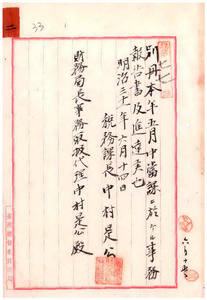 別冊本年五月中当課ニ於ケル事務
報告書及進達候也
明治三十一年六月十四日
税務課長中村是公
財務局長事務取扱代理中村是公殿